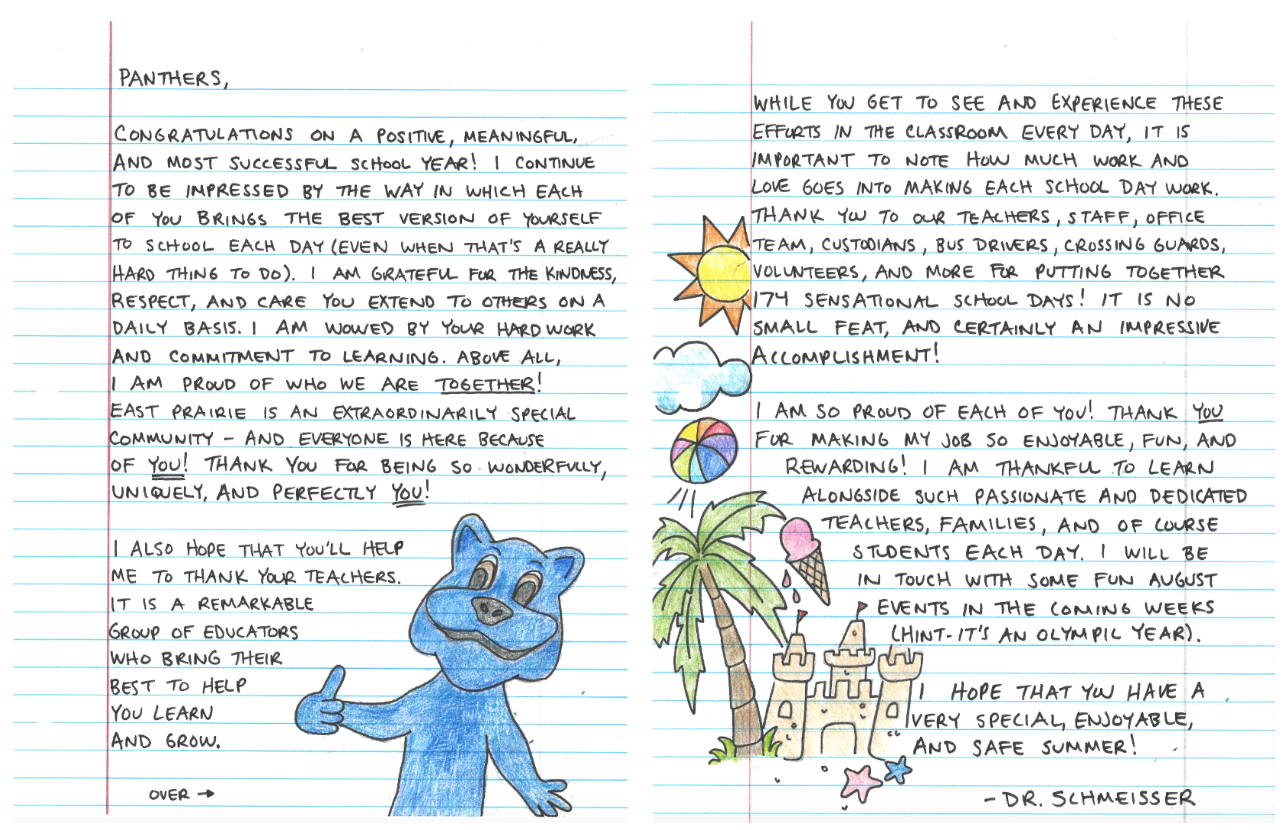 PANTHERS,
CONGRATULATIONS ON A POSITIVE, MEANINGFUL,
AND MOST SUCCESSFUL SCHOOL YEAR! I CONTINUE
TO BE IMPRESSED BY THE WAY IN WHICH EACH
OF YOU BRINGS THE BEST VERSION OF YOURSELF
TO SCHOOL EACH DAY (EVEN WHEN THAT'S A REALLY
HARD THING TO DO). I AM GRATEFUL FOR THE KINDNESS,
RESPECT, AND CARE YOU EXTEND TO OTHERS ON A
DAILY BASIS. I AM WOWED BY YOUR HARD WORK
AND COMMITMENT TO LEARNING. ABOVE ALL,
I AM PROUD OF WHO WE ARE TOGETHER!
EAST PRAIRIE IS AN EXTRAORDINARILY SPECIAL
COMMUNITY - AND EVERYONE IS HERE BECAUSE
OF YOU! THANK YOU FOR BEING SO WONDERFULLY,
UNIQUELY, AND PERFECTLY YOU!
I ALSO HOPE THAT YOU'LL HELP
ME TO THANK YOUR TEACHERS.
IT IS A REMARKABLE
GROUP OF EDUCATORS
WHO BRING THEIR
BEST TO HELP
YOU LEARN
AND GROW.
OVER →
WHILE YOU GET TO SEE AND EXPERIENCE THESE
EFFORTS IN THE CLASSROOM EVERY DAY, IT IS
IMPORTANT TO NOTE HOW MUCH WORK AND
LOVE GOES INTO MAKING EACH SCHOOL DAY WORK.
THANK YOU TO OUR TEACHERS, STAFF, OFFICE
TEAM, CUSTODIANS, BUS DRIVERS, CROSSING GUARDS,
VOLUNTEERS, AND MORE FOR PUTTING TOGETHER
174 SENSATIONAL SCHOOL DAYS! IT IS NO
SMALL FEAT, AND CERTAINLY AN IMPRESSIVE
ACCOMPLISHMENT!
I AM SO PROUD OF EACH OF YOU! THANK YOU
FOR MAKING MY JOB SO ENJOYABLE, FUN, AND
REWARDING! I AM THANKFUL TO LEARN
ALONGSIDE SUCH PASSIONATE AND DEDICATED
TEACHERS, FAMILIES, AND OF COURSE
STUDENTS EACH DAY. I WILL BE
IN TOUCH WITH SOME FUN AUGUST
EVENTS IN THE COMING WEEKS
(HINT-IT'S AN OLYMPIC YEAR).
I HOPE THAT YOU HAVE A
VERY SPECIAL, ENJOYABLE,
AND SAFE SUMMER!
- DR. SCHMEISSER